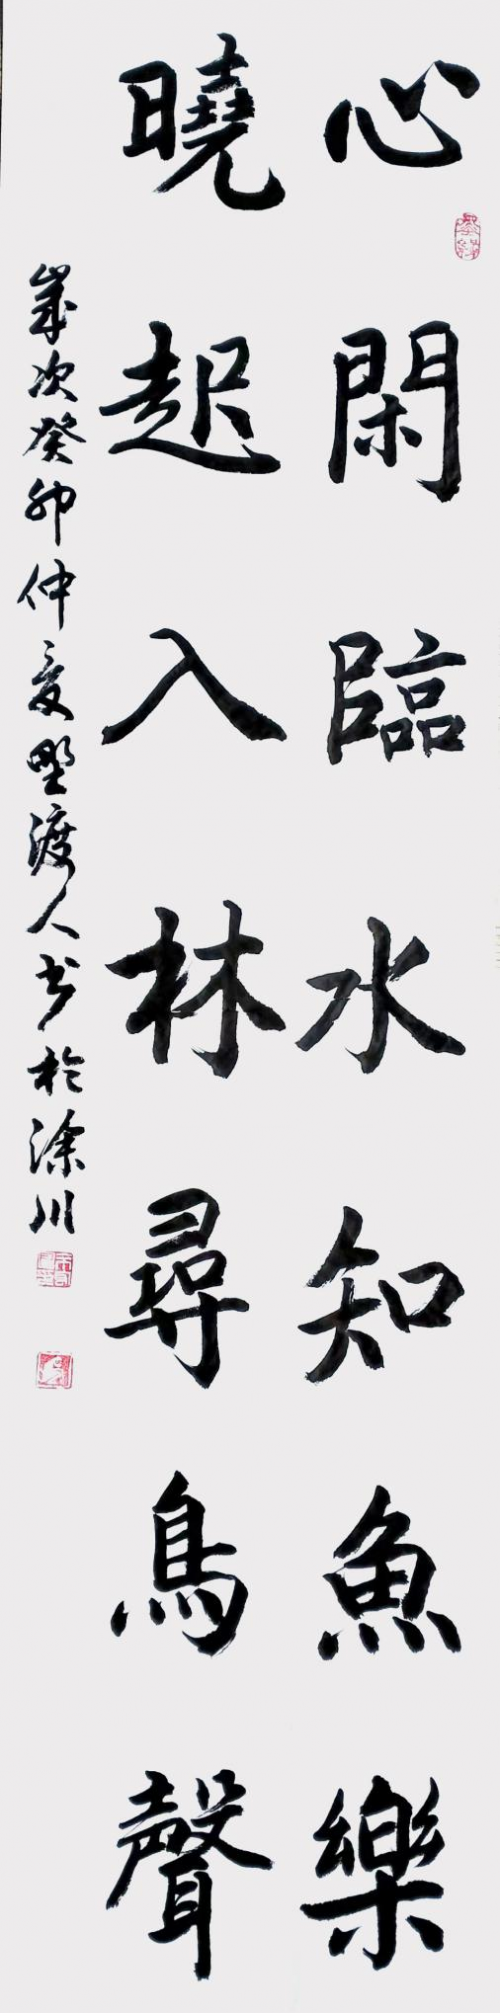 心閑臨水知魚樂
曉起入林尋鳥聲
歲次癸卯仲夏野渡人書於涂川